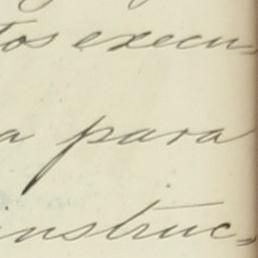 tos execu-
a para
instruc-